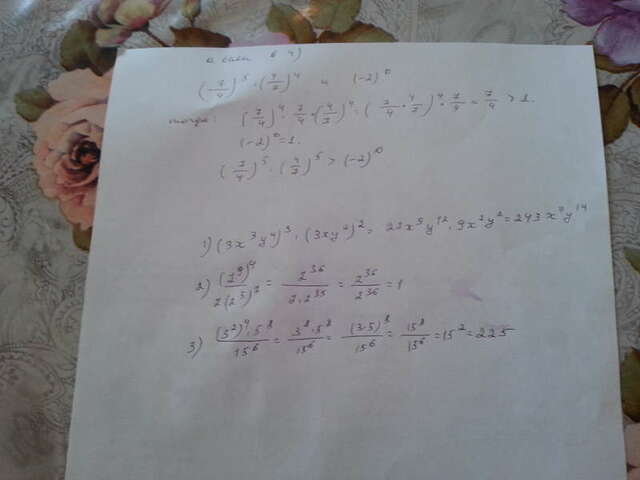 а если в 4)
(7/4)^5 · (4/7)^4 и (-2)^0
тогда: (7/4)^4 · 7/4 · (4/7)^4 = (7/4 · 4/7)^4 · 7/4 = 7/4 > 1.
(-2)^0 = 1.
(7/4)^5 · (4/7)^5 > (-2)^0
1) (3x^3y^4)^3 · (3xy^2)^2 = 27x^9y^12 · 9x^2y^2 = 243x^9y^14
2) (2^9)^4 / 2(2^5)^7 = 2^36 / 2·2^35 = 2^36 / 2^36 = 1
3) (3^2)^4·5^8 / 15^6 = 3^8·5^8 / 15^6 = (3·5)^8 / 15^6 = 15^8 / 15^6 = 15^2 = 225